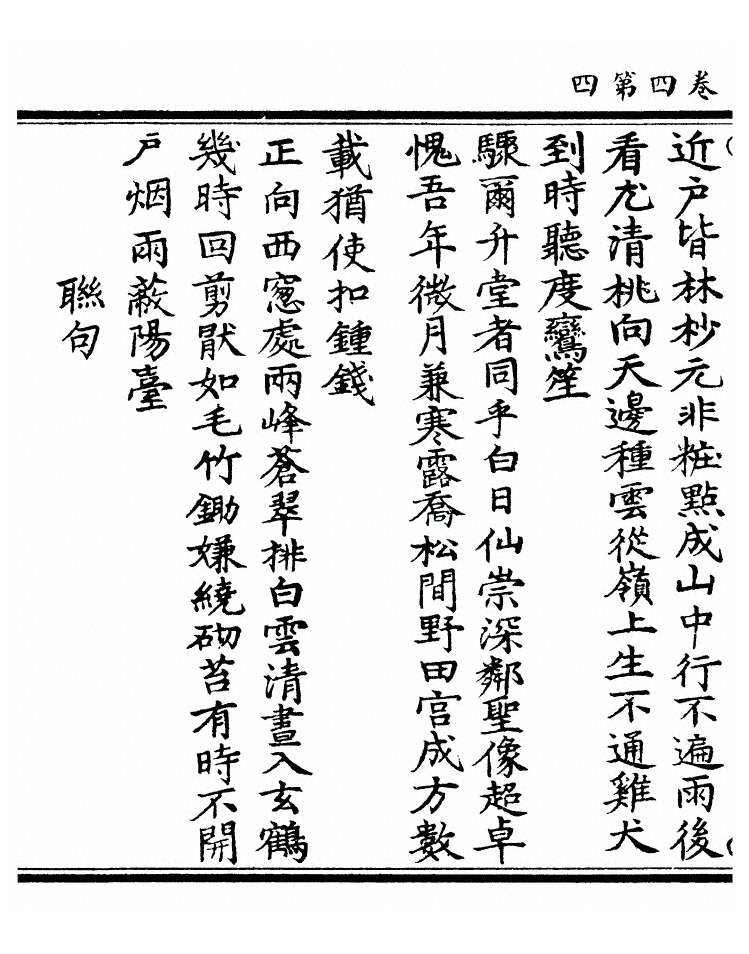 卷四第四
近戶皆林杪元非粧點成山中行不遍雨後
看尤清桃向天邊種雲從嶺上生不通雞犬
到時聽度鸞笙
驟爾升堂者同乎白日仙崇深鄰聖像超卓
愧吾年微月兼寒露喬松間野田宮成方數
載猶使扣鍾錢
正向西窻處兩峰蒼翠排白雲清晝入玄鶴
幾時回剪厭如毛竹鋤嫌繞砌苔有時不開
戶烟雨蔽陽臺
聯句